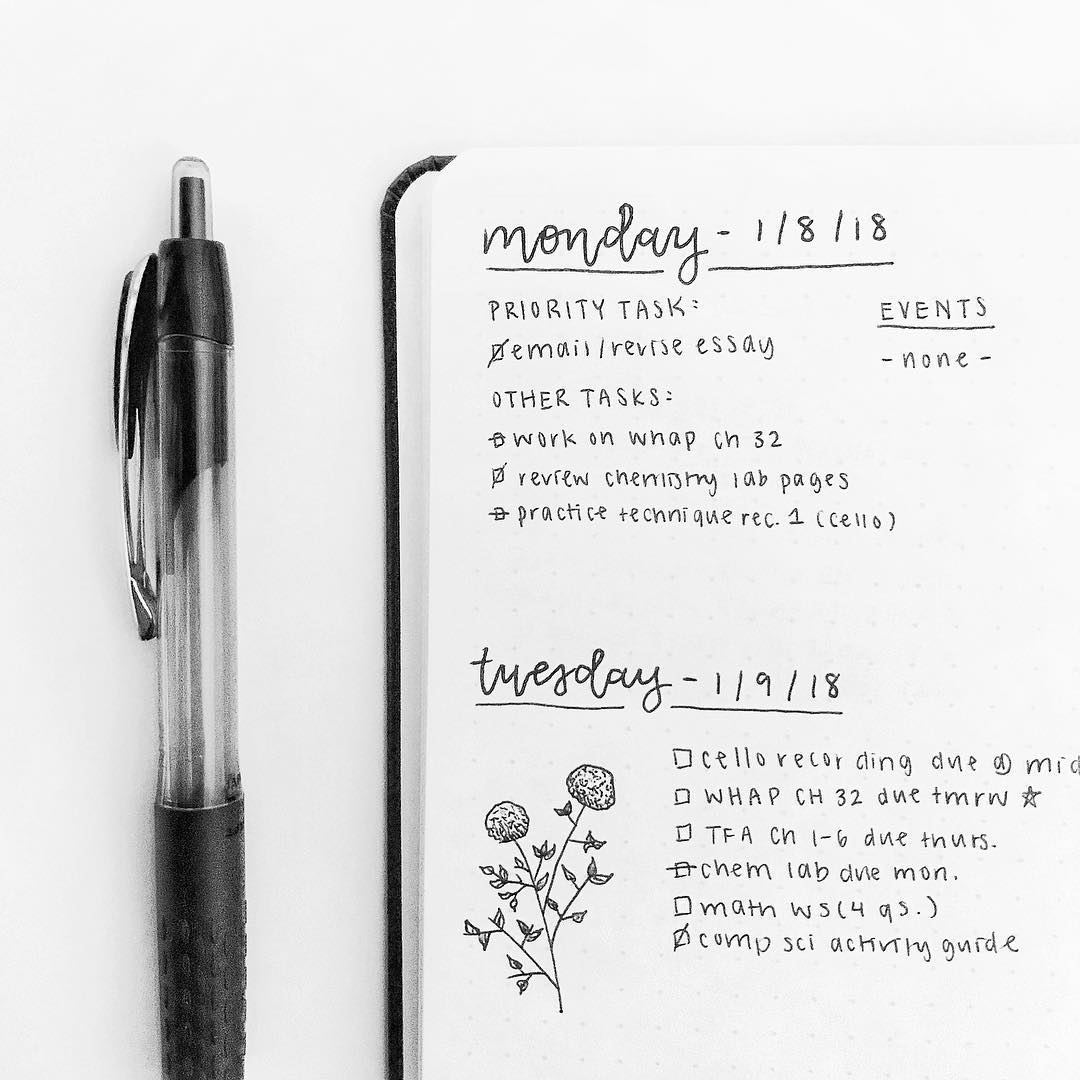 monday - 1/8/18
PRIORITY TASK:
email/revise essay
EVENTS
- none -
OTHER TASKS:
work on whap ch 32
review chemistry lab pages
practice technique rec. 1 (cello)
tuesday - 1/9/18
cello recording due @ mid
WHAP CH 32 due tmrw ☆
TFA Ch 1-6 due thurs.
chem lab due mon.
math ws (4 qs.)
comp sci activity guide